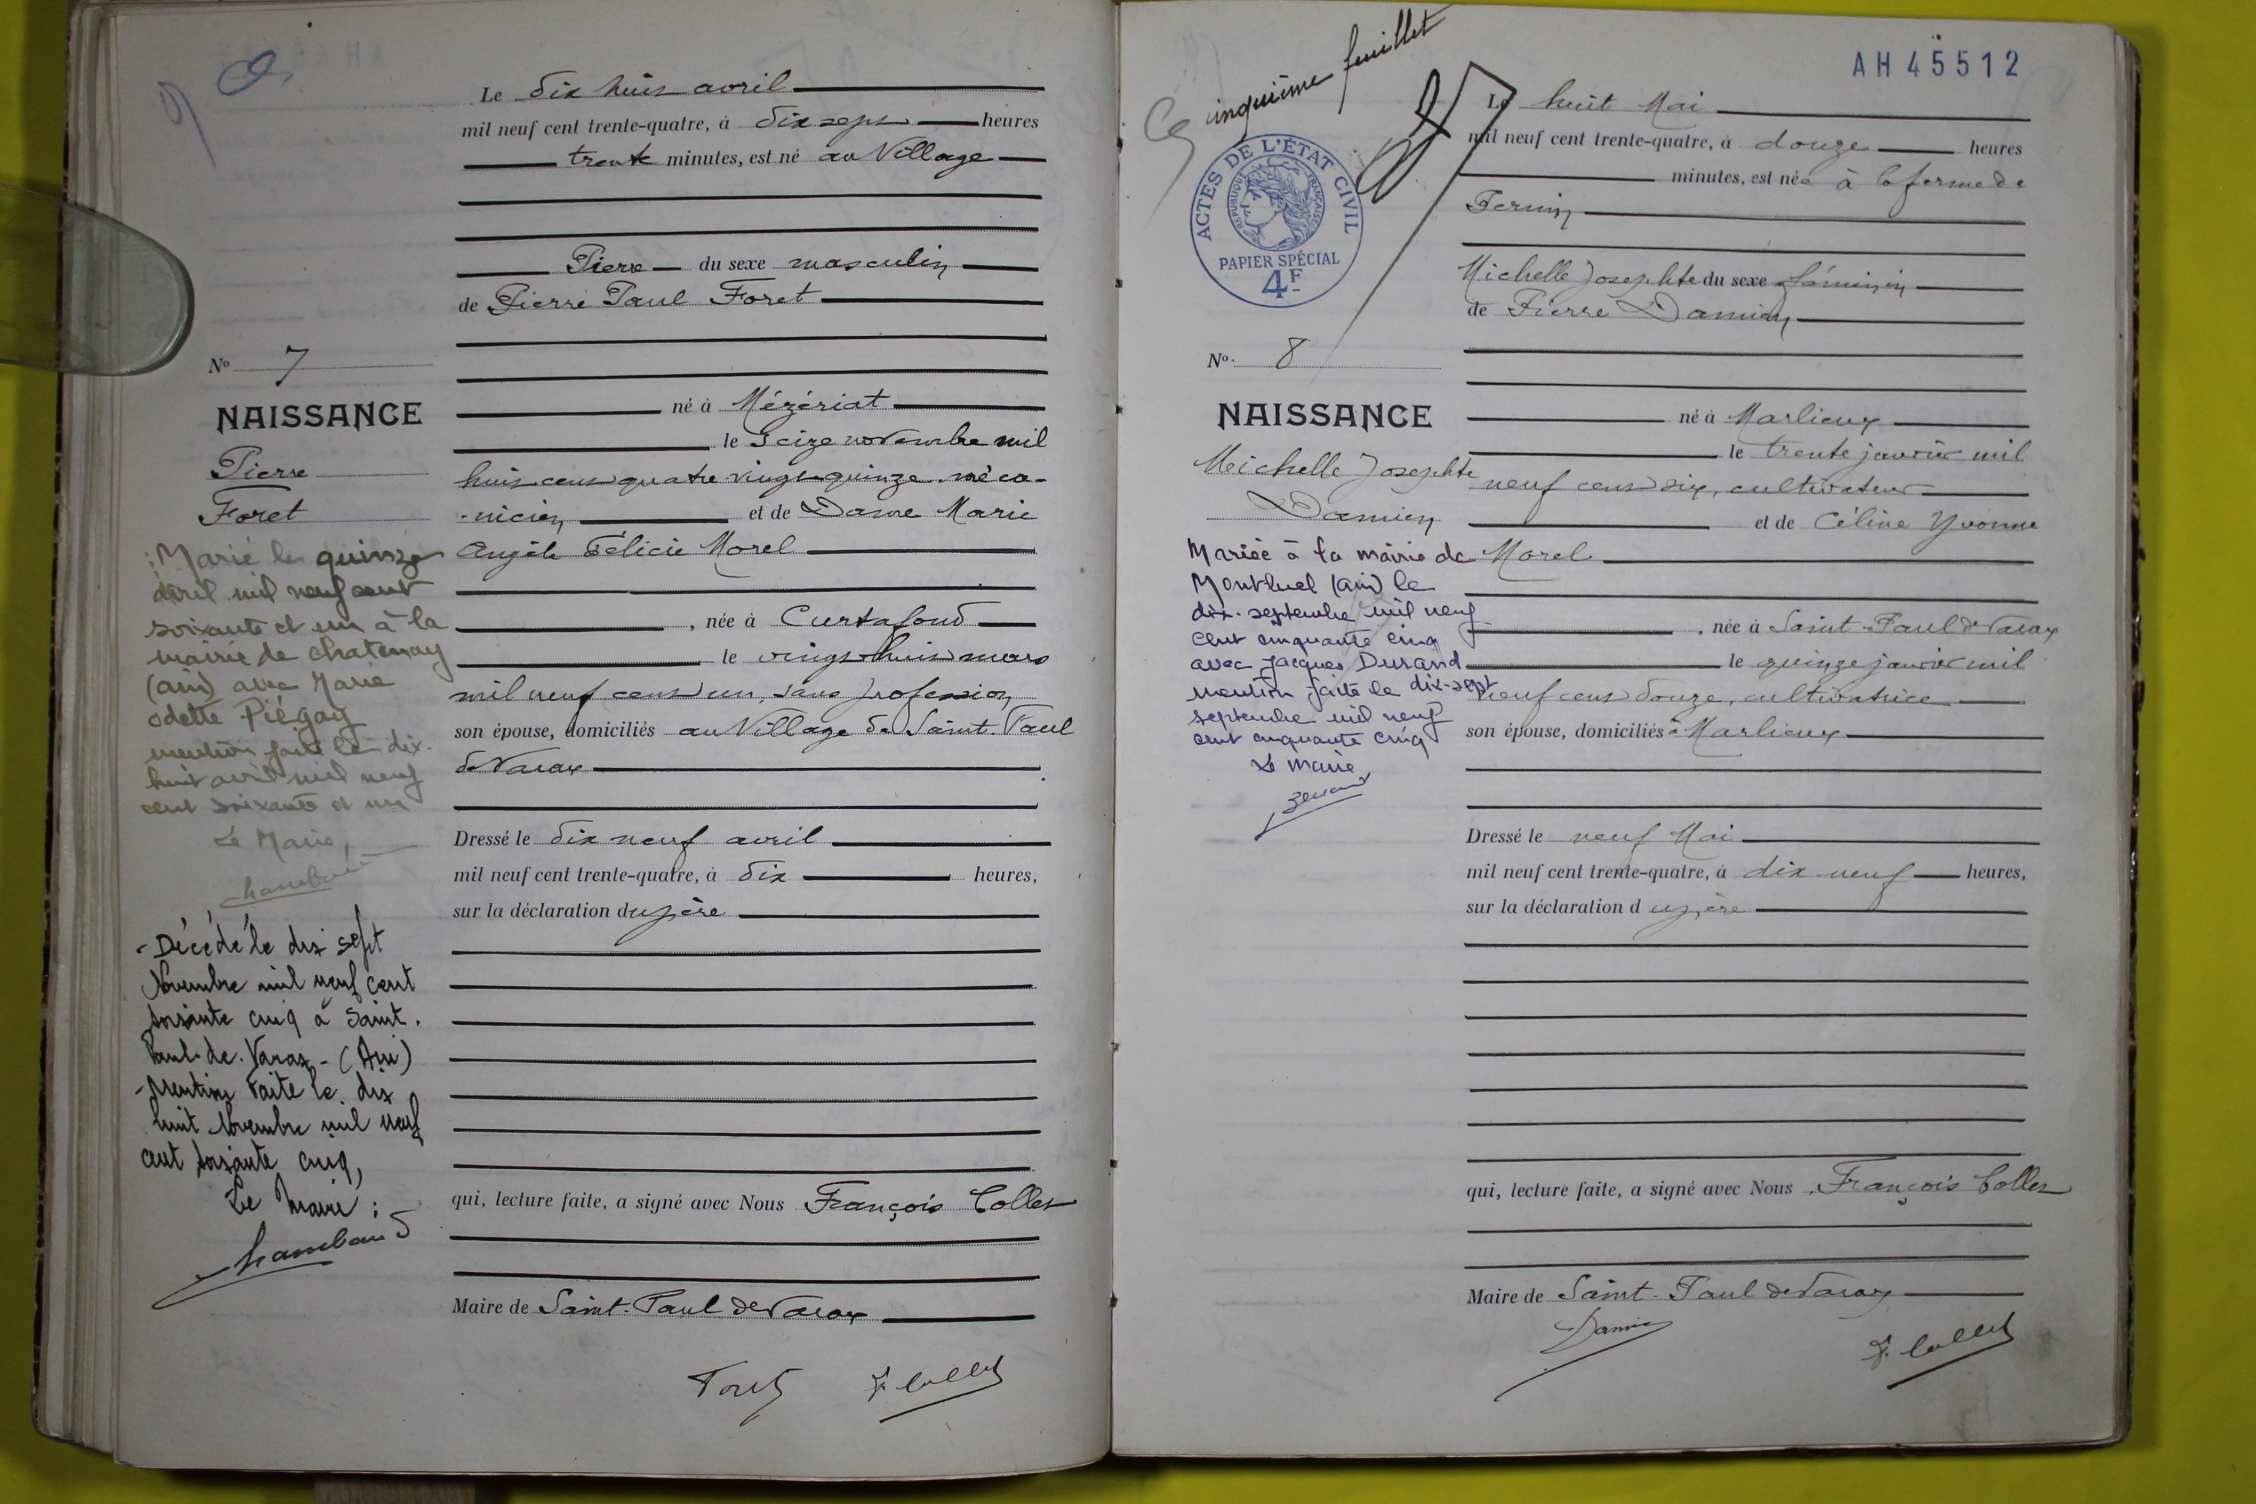 Le dix huit avril
mil neuf cent trente-quatre, à dix sept heures
trente minutes, est né au Village
Pierre du sexe masculin
de Pierre Paul Foret
né à Mézériat
le seize novembre mil
huit cent quatre vingt quinze, méca-
-nicien et de Dame Marie
Angèle Félicie Morel
, née à Curtafond
le vingt huit mars
mil neuf cent un, sans profession
son épouse, domiciliés au Village de Saint-Paul
de Varax
Dressé le dix neuf avril
mil neuf cent trente-quatre, à dix heures,
sur la déclaration du père
qui, lecture faite, a signé avec Nous François Collet
Maire de Saint-Paul de Varax
Foret F. Collet
No 7
NAISSANCE
Pierre
Foret
Marié le quinze
avril mil neuf cent
soixante et un à la
mairie de Chatenay
(ain) avec Marie
odette Piégay
mention faite le dix-
huit avril mil neuf
cent soixante et un
Le Maire,
Chambaud
- Décédé le dix sept
Novembre mil neuf cent
soixante cinq à Saint.
Paul-de-Varax-(Ain)
- Mention faite le dix
huit Novembre mil neuf
cent soixante cinq,
Le Maire :
Chambaud
Cinquième feuillet
AH 45512
ACTES DE L'ÉTAT CIVIL
RÉPUBLIQUE FRANÇAISE
PAPIER SPÉCIAL
4F
Le huit Mai
mil neuf cent trente-quatre, à douze heures
minutes, est née à la ferme de
Michelle Josephte du sexe féminin
de Pierre Damien
né à Marlieux
le trente janvier mil
neuf cent six, cultivateur
et de Céline Yvonne
Morel
, née à Saint-Paul de Varax
le quinze janvier mil
neuf cent douze, cultivatrice
son épouse, domiciliés à Marlieux
Dressé le neuf Mai
mil neuf cent trente-quatre, à dix-neuf heures,
sur la déclaration du père
qui, lecture faite, a signé avec Nous François Collet
Maire de Saint-Paul de Varax
Damien F. Collet
No. 8
NAISSANCE
Michelle Josephte
Damien
Mariée à la mairie de
Montluel (ain) le
dix-septembre mil neuf
cent cinquante cinq
avec Jacques Durand
mention faite le dix-sept
septembre mil neuf
cent cinquante cinq
Le Maire